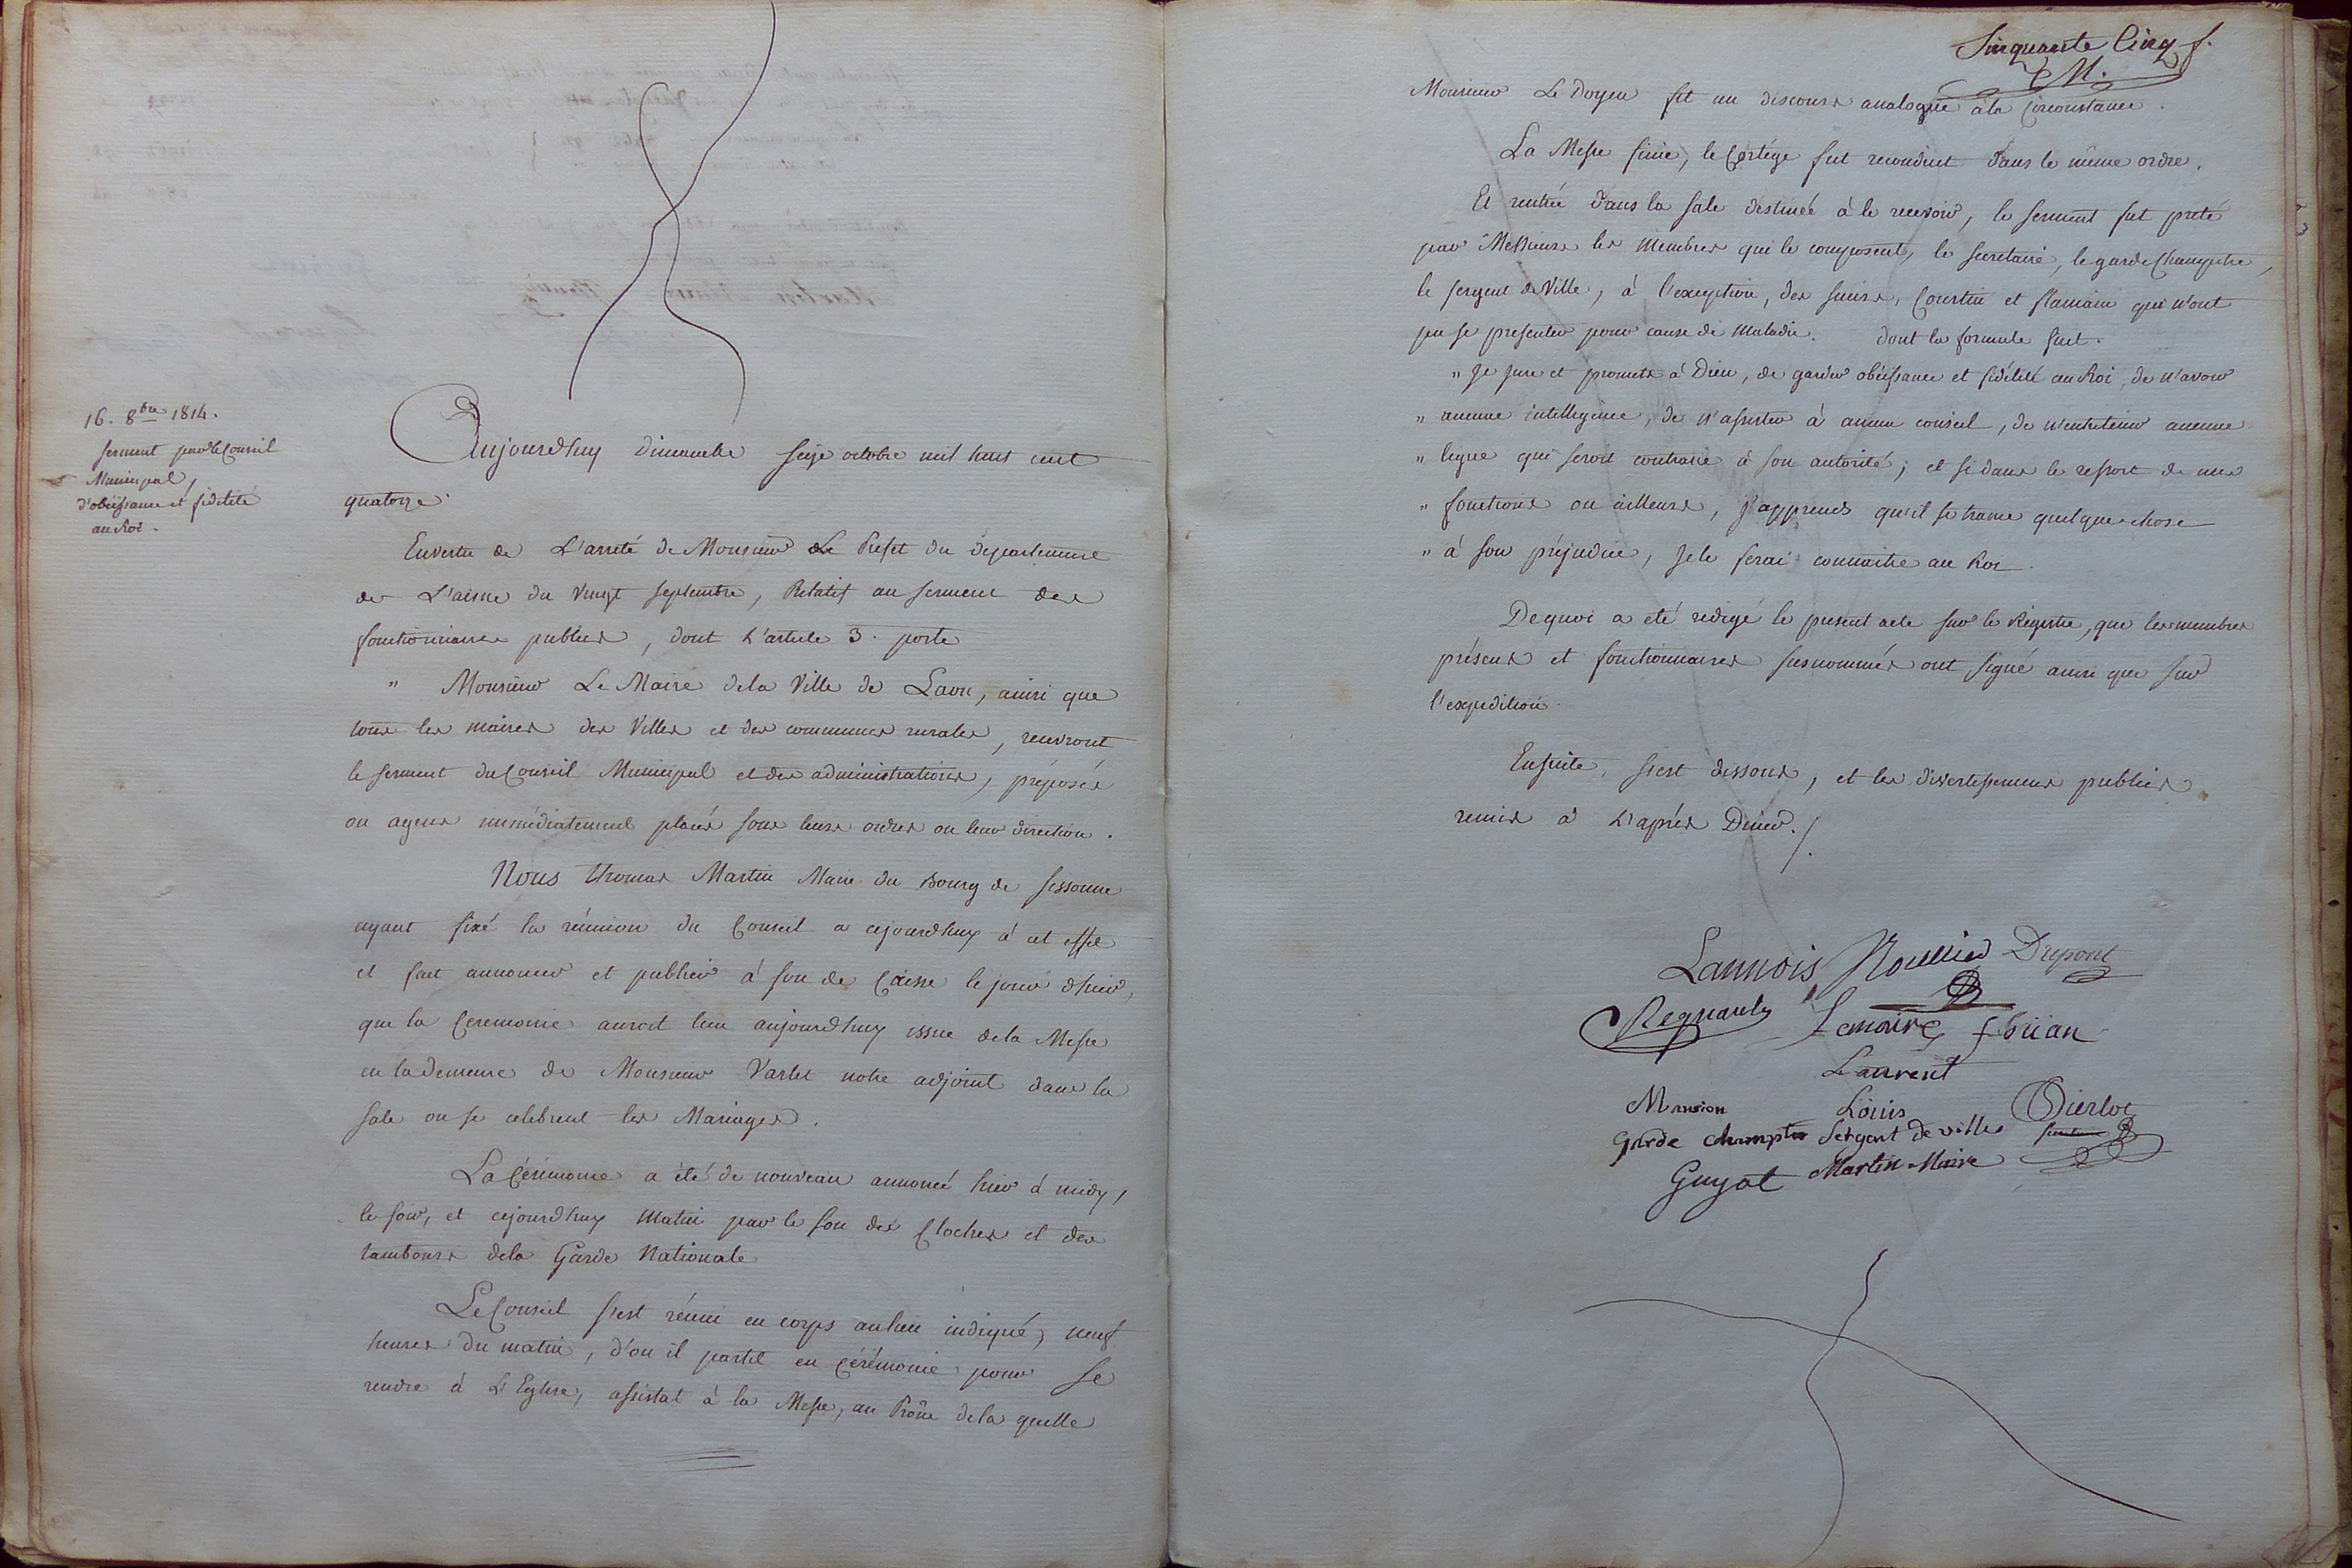 16. 8bre 1814.
serment par le Conseil
Municipal,
d'obéissance et fidélité
au Roi.
Aujourdhuy dimanche seize octobre mil huit cent
quatorze.
Envertu de L'arreté de Monsieur Le Prefet du département
de L'aisne du vingt septembre, Relatif au serment des
fonctionnaires publics, dont L'article 3. porte
" Monsieur Le Maire dela Ville de Laon, ainsi que
tous les maires des Villes et des communes rurales, recevront
le serment du Conseil Municipal et des administrations, préposés
ou agens immédiatement placés sous leurs ordres ou leur direction.
Nous Thomas Martin Maire du Bourg de sissonne
ayant fixé la réunion du Conseil a cejourdhuy à cet effet
et fait annoncer et publier à son de Caisse le jour d'hier,
que la Ceremonie auroit lieu aujourdhuy issue dela Messe
en la demeure de Monsieur Varlet notre adjoint dans la
sale ou se celebrent les Mariages.
La Cérémonie a été de nouveau annoncé hier à midy,
le soir, et cejourdhuy matin par le son des Cloches et des
tambours dela Garde Nationale
Le Conseil s'est réuni en corps aulieu indiqué, neuf
heures du matin, d'ou il partit en Cérémonie pour se
rendre à L'Eglise, assistat à la Messe, au Prône dela quelle
Sinquante Cinq f.
M.
Monsieur Le Doyen fit un discours analogue àla Circonstance.
La Messe finie, le Cortége fut reconduit dans le même ordre.
Et rentrée dans la sale destinée à le recevoir, le serment fut preté
par Messieurs les Membres qui le composent, le secretaire, le garde Champetre,
le sergent de Ville, à l'exeption, des sieurs, Courtin et flamain qui n'ont
pu se presenter pour cause de maladie. dont la formule suit.
" Je Jure et promets à Dieu, de garder obéissance et fidélité au Roi, de n'avoir
" aucune intelligence, de n'assister à aucun conseil, de n'entretenir aucune
" ligue qui seroit contraire à son autorité; et si dans le ressort de mes
" fonctions ou ailleurs, j'apprends qu'il se trame quelque chose
" à son préjudice, Je le ferai connaitre au Roi.
Dequoi a été redigé le present acte sur le Régistre, que les membres
présens et fonctionnaires susnommés ont signé ainsi que sur
l'expedition.
Ensuite, s'est dissous, et les divertissemens publics
remis à L'aprés Diner./.
Lannois Noullier Dupont
Regnault Lemaire
Laurent
Mansion Louis
Garde champetre Sergent de ville
Guyot Martin Maire